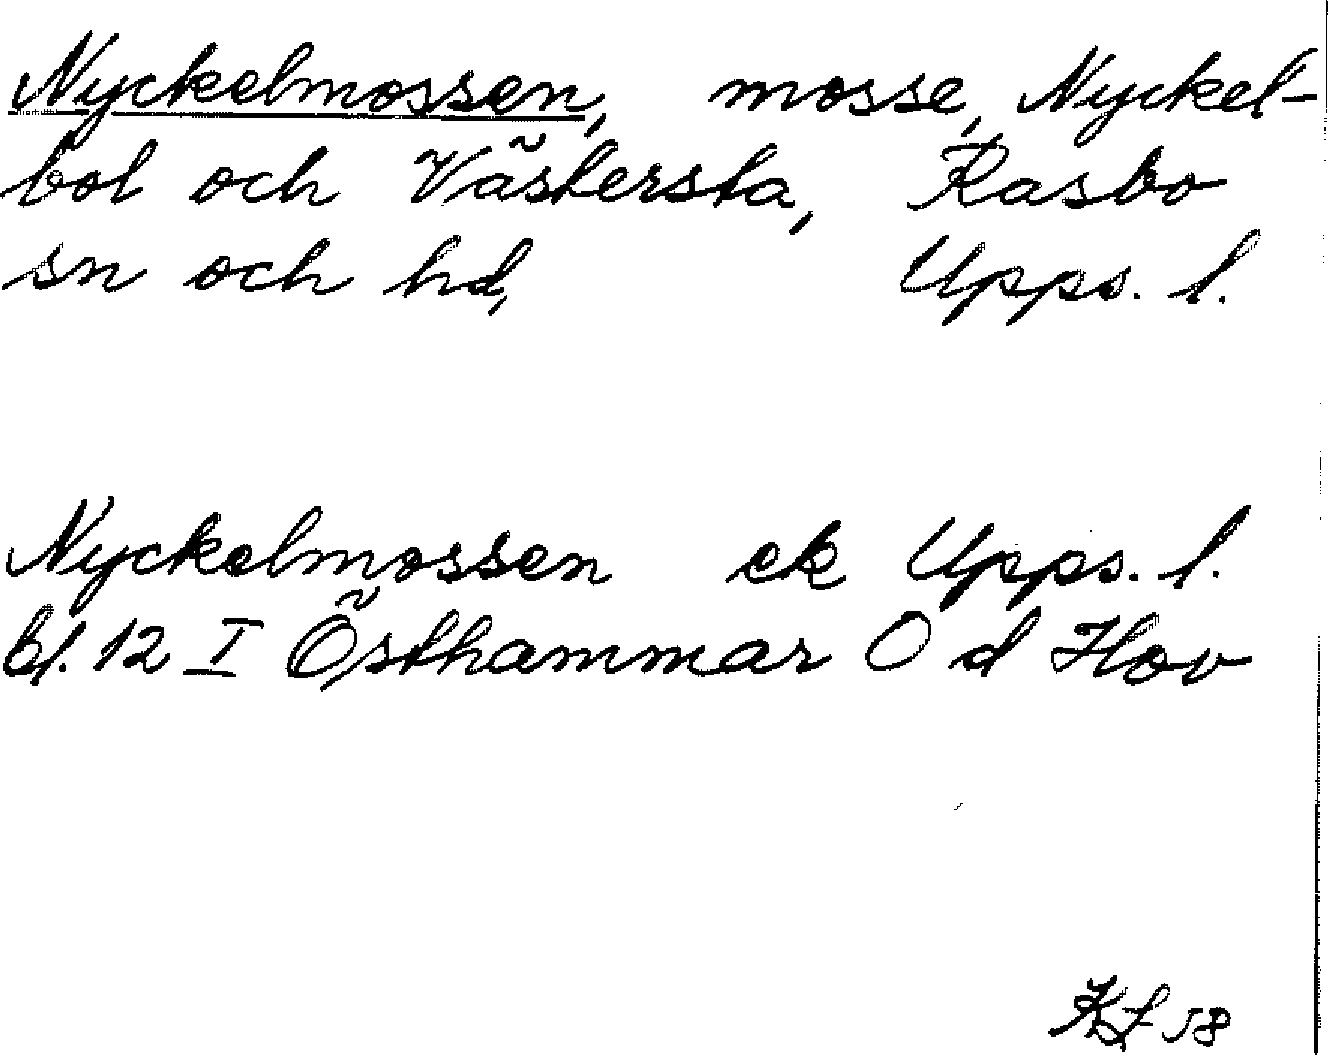 Nyckelmossen, mosse, Nyckel-
bol och Västersta, Rasbo
sn och hd, Upps. l.
Nyckelmossen ek Upps. l.
bl. 12 I Östhammar O d Hov
58